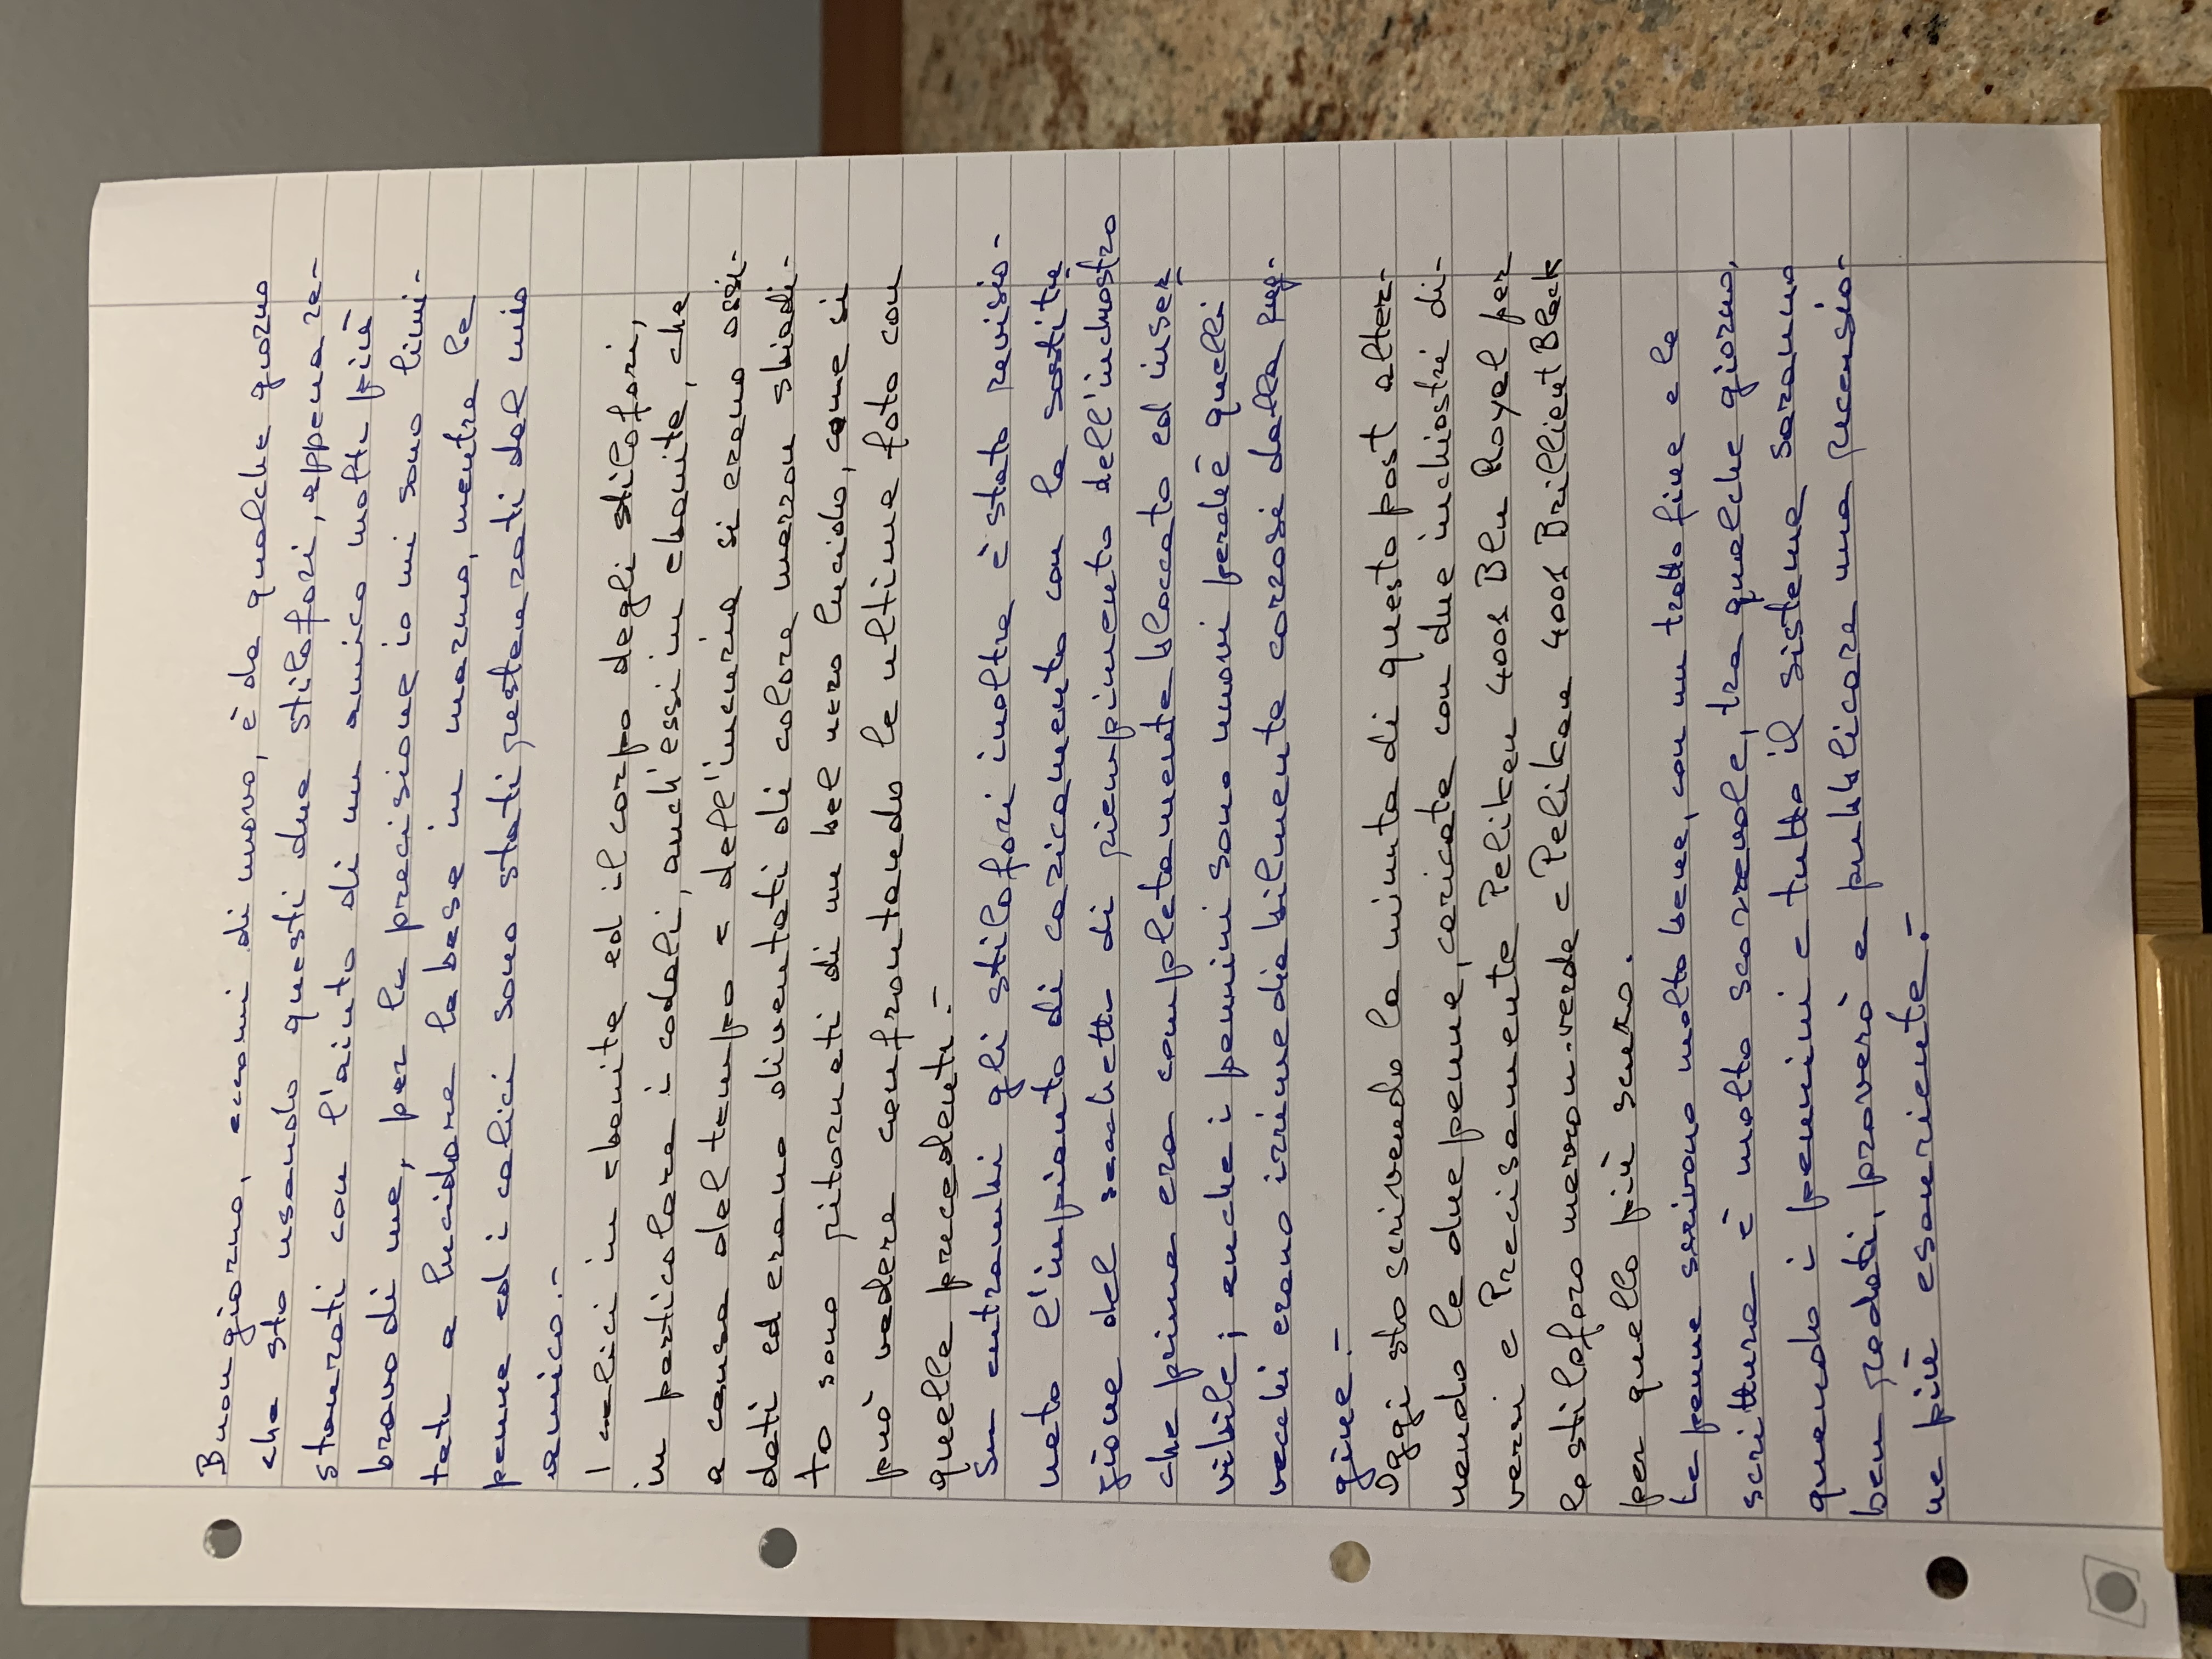 Buongiorno, eccomi di nuovo, è da qualche giorno
che sto usando questi due stilofori, appena re-
staurati con l'aiuto di un amico molto più
bravo di me, per la precisione io mi sono limi-
tato a lucidare la base in marmo, mentre le
penne ed i calici sono stati restaurati dal mio
amico.-
I calici in ebanite ed il corpo degli stilofori,
in particolare i codoli, anch'essi in ebanite, che
a causa del tempo e dell'incuria si erano ossi-
dati ed erano diventati di colore marron sbiadi-
to sono ritornati di un bel nero lucido, come si
può vedere confrontando le ultime foto con
quelle precedenti.-
In entrambi gli stilofori inoltre è stato revisio-
nato l'impianto di caricamento con la sostitu
zione del sacchetto di riempimento dell'inchiostro
che prima era completamente bloccato ed inser
vibile; anche i pennini sono nuovi perché quelli
vecchi erano irrimediabilmente corrosi dalla rug-
gine.-
Oggi sto scrivendo la minuta di questo post alter-
nando le due penne, caricate con due inchiostri di-
versi e Precisamente Pelikan 4001 Blu Royal per
lo stiloforo marron-verde e Pelikan 4001 Brilliant Black
per quello più scuro.
Le penne scrivono molto bene, con un tratto fine e la
scrittura è molto scorrevole, tra qualche giorno,
quando i pennini e tutto il sistema saranno
ben rodati, proverò a pubblicare una recensio-
ne più esauriente.-